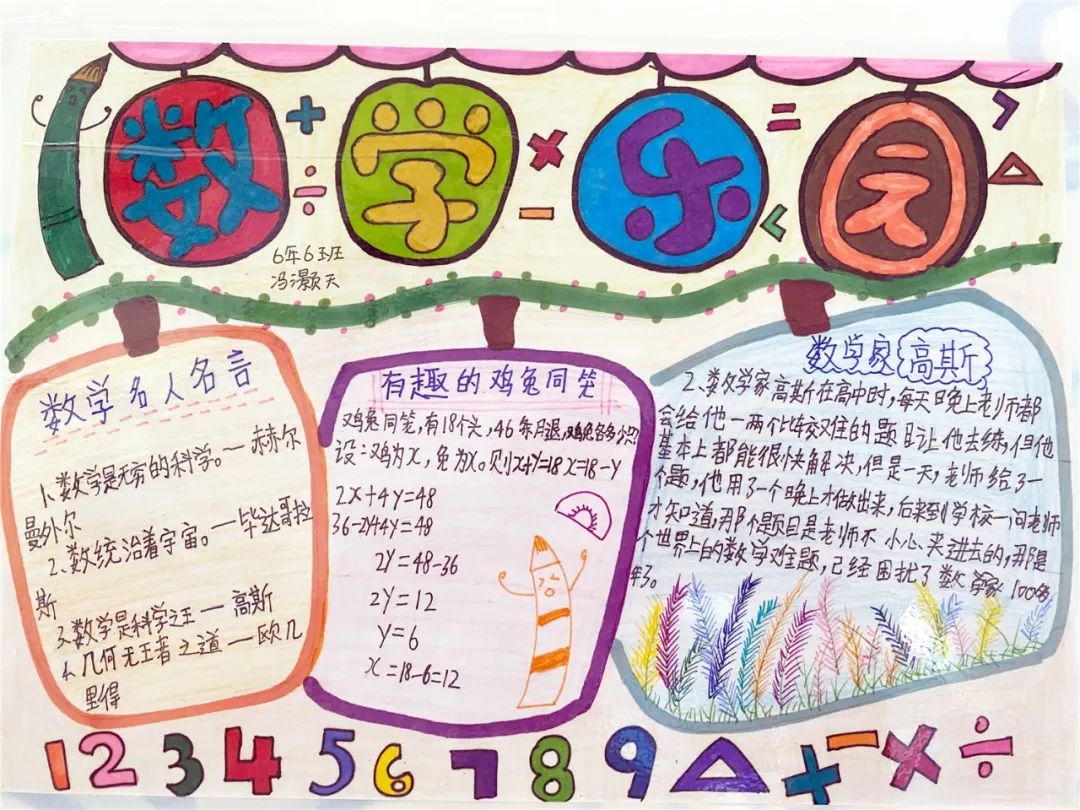 数 + 学 × 乐 = 园 >
÷ - < △
6年6班
冯灏天
数学名人名言
1、数学是无穷的科学。— 赫尔
曼外尔
2、数统治着宇宙。— 毕达哥拉
斯
3、数学是科学之王 — 高斯
4、几何无王者之道 — 欧几
里得
有趣的鸡兔同笼
鸡兔同笼,有18个头,46条腿,鸡兔各多少只?
设:鸡为x,兔为x。则x+y=18 x=18-y
2x+4y=48
36-2y+4y=48
2y=48-36
2y=12
y=6
x=18-6=12
数学家高斯
2、数学家高斯在高中时,每天晚上老师都
会给他一两个比较难的题目让他去练,但他
基本上都能很快解决,但是一天,老师给了一
个题,他用了一个晚上才做出来,后来到学校一问老师
才知道,那个题目是老师不小心夹进去的,那是
个世界上的数学难题,已经困扰了数学家100多
年了。
1 2 3 4 5 6 7 8 9 △ + - × ÷